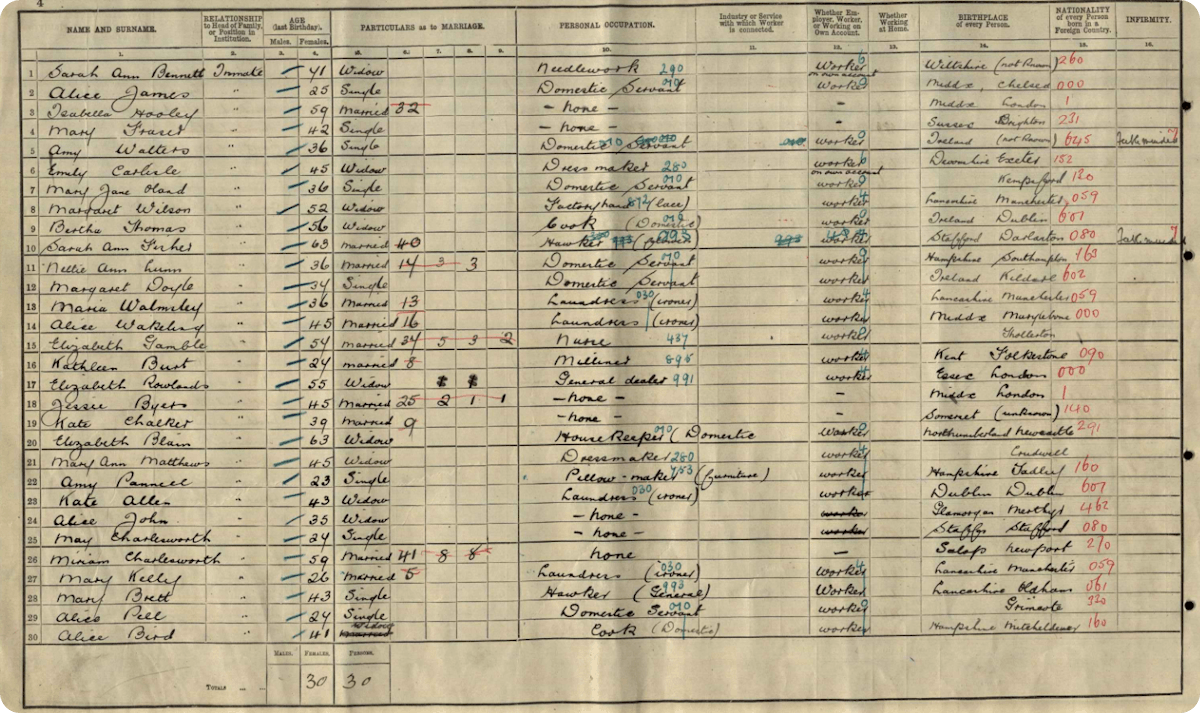 4
NAME AND SURNAME. RELATIONSHIP to Head of Family, or Position in Institution. AGE (last Birthday). Males. Females. PARTICULARS as to MARRIAGE. PERSONAL OCCUPATION. Industry or Service with which Worker is connected. Whether Employer, Worker, or Working on Own Account. Whether Working at Home. BIRTHPLACE of every Person. NATIONALITY of every Person born in a Foreign Country. INFIRMITY.
1. 2. 3. 4. 5. 6. 7. 8. 9. 10. 11. 12. 13. 14. 15. 16.
1 Sarah Ann Bennett Inmate 41 Widow Needlework 290 Worker 6 on own account Wiltshire (not Known) 260
2 Alice James " 25 Single Domestic Servant 010 Worker Middx, Chelsea 000
3 Isabella Hooley " 59 Married 32 - none - - Middx London 1
4 Mary Fraser " 42 Single - none - - Sussex Brighton 231
5 Amy Walters " 36 Single Domestic Servant worker Ireland (not Known) 645 Feeble minded 7
6 Emily Carlisle " 45 Widow Dress maker 280 worker 6 on own account Devonshire Exeter 152
7 Mary Jane Oland " 36 Single Domestic Servant 010 worker Kempsford 120
8 Margaret Wilson " 52 Widow Factory hand (lace) worker Lancashire Manchester 059
9 Bertha Thomas " 56 Widow Cook (Domestic) worker Ireland Dublin 607
10 Sarah Ann Fisher " 63 Married 40 Hawker worker Stafford Darlaston 080 Feeble minded 7
11 Nellie Ann Lunn " 36 Married 14 3 3 Domestic Servant 010 worker Hampshire Southampton 163
12 Margaret Doyle " 34 Single Domestic Servant worker Ireland Kildare 602
13 Maria Walmsley " 36 Married 13 Laundress 030 (ironer) worker 4 Lancashire Manchester 059
14 Alice Wakeling " 45 Married 16 Laundress (ironer) worker Middx Marylebone 000
15 Elizabeth Gamble " 54 Married 34 5 3 2 Nurse 437 worker Tholleston
16 Kathleen Burt " 24 married 8 Milliner 895 worker 4 Kent Folkestone 090
17 Elizabeth Rowlands " 55 Widow General dealer 991 worker 4 Essex London 000
18 Jessie Byers " 45 Married 25 2 1 1 - none - - Middx London 1
19 Kate Chalker " 39 Married 9 - none - - Somerset (unknown) 140
20 Elizabeth Blain " 63 Widow House Keeper 010 (Domestic Worker Northumberland Newcastle 291
21 Mary Ann Matthews " 45 Widow Dressmaker 280 worker 4 Crudwell
22 Amy Pannell " 23 Single Pillow-maker 753 (furniture) worker Hampshire Tadley 160
23 Kate Allen " 43 Widow Laundress 030 (ironer) worker Dublin Dublin 607
24 Alice John " 35 Widow - none - worker Glamorgan Merthyr 462
25 May Charlesworth " 24 Single - none - worker Staffs Stafford 080
26 Miriam Charlesworth " 59 Married 41 8 8 none - Salop Newport 270
27 Mary Kelly " 26 Married 5 Laundress 030 (ironer) Worker 4 Lancashire Manchester 059
28 Mary Brett " 43 Single Hawker 993 (General) Worker Lancashire Oldham 061
29 Alice Pell " 24 Single Domestic Servant 010 worker 320
30 Alice Bird " 41 Widow married Cook (Domestic) worker Hampshire Mitcheldever 160
MALES. FEMALES. PERSONS.
TOTALS 30 30